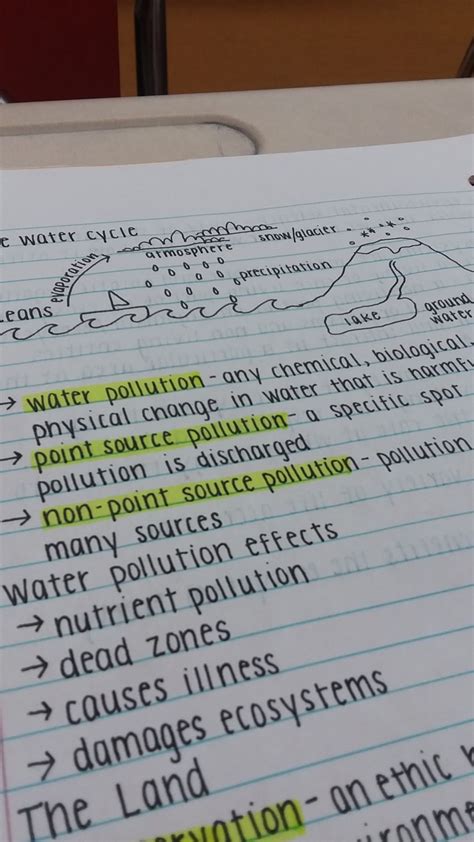 e water cycle
atmosphere
snow/glacier
evaporation
precipitation
eans
lake
ground
water
→ water pollution - any chemical, biological,
physical change in water that is harmf
→ point source pollution - a specific spot
pollution is discharged
→ non-point source pollution - pollution
many sources
Water pollution effects
→ nutrient pollution
→ dead zones
→ causes illness
→ damages ecosystems
The Land
ervation - an ethic
ironme